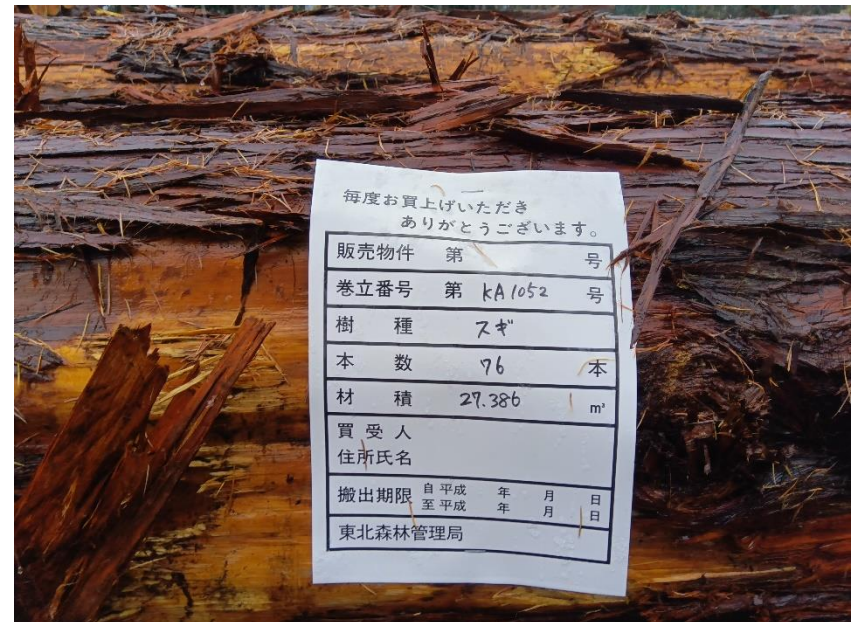 毎度お買上げいただき
ありがとうございます。
販売物件 第 号
巻立番号 第 KA1052 号
樹 種 スギ
本 数 76 本
材 積 27.386 m³
買受人
住所氏名
搬出期限 自 平成 年 月 日
至 平成 年 月 日
東北森林管理局